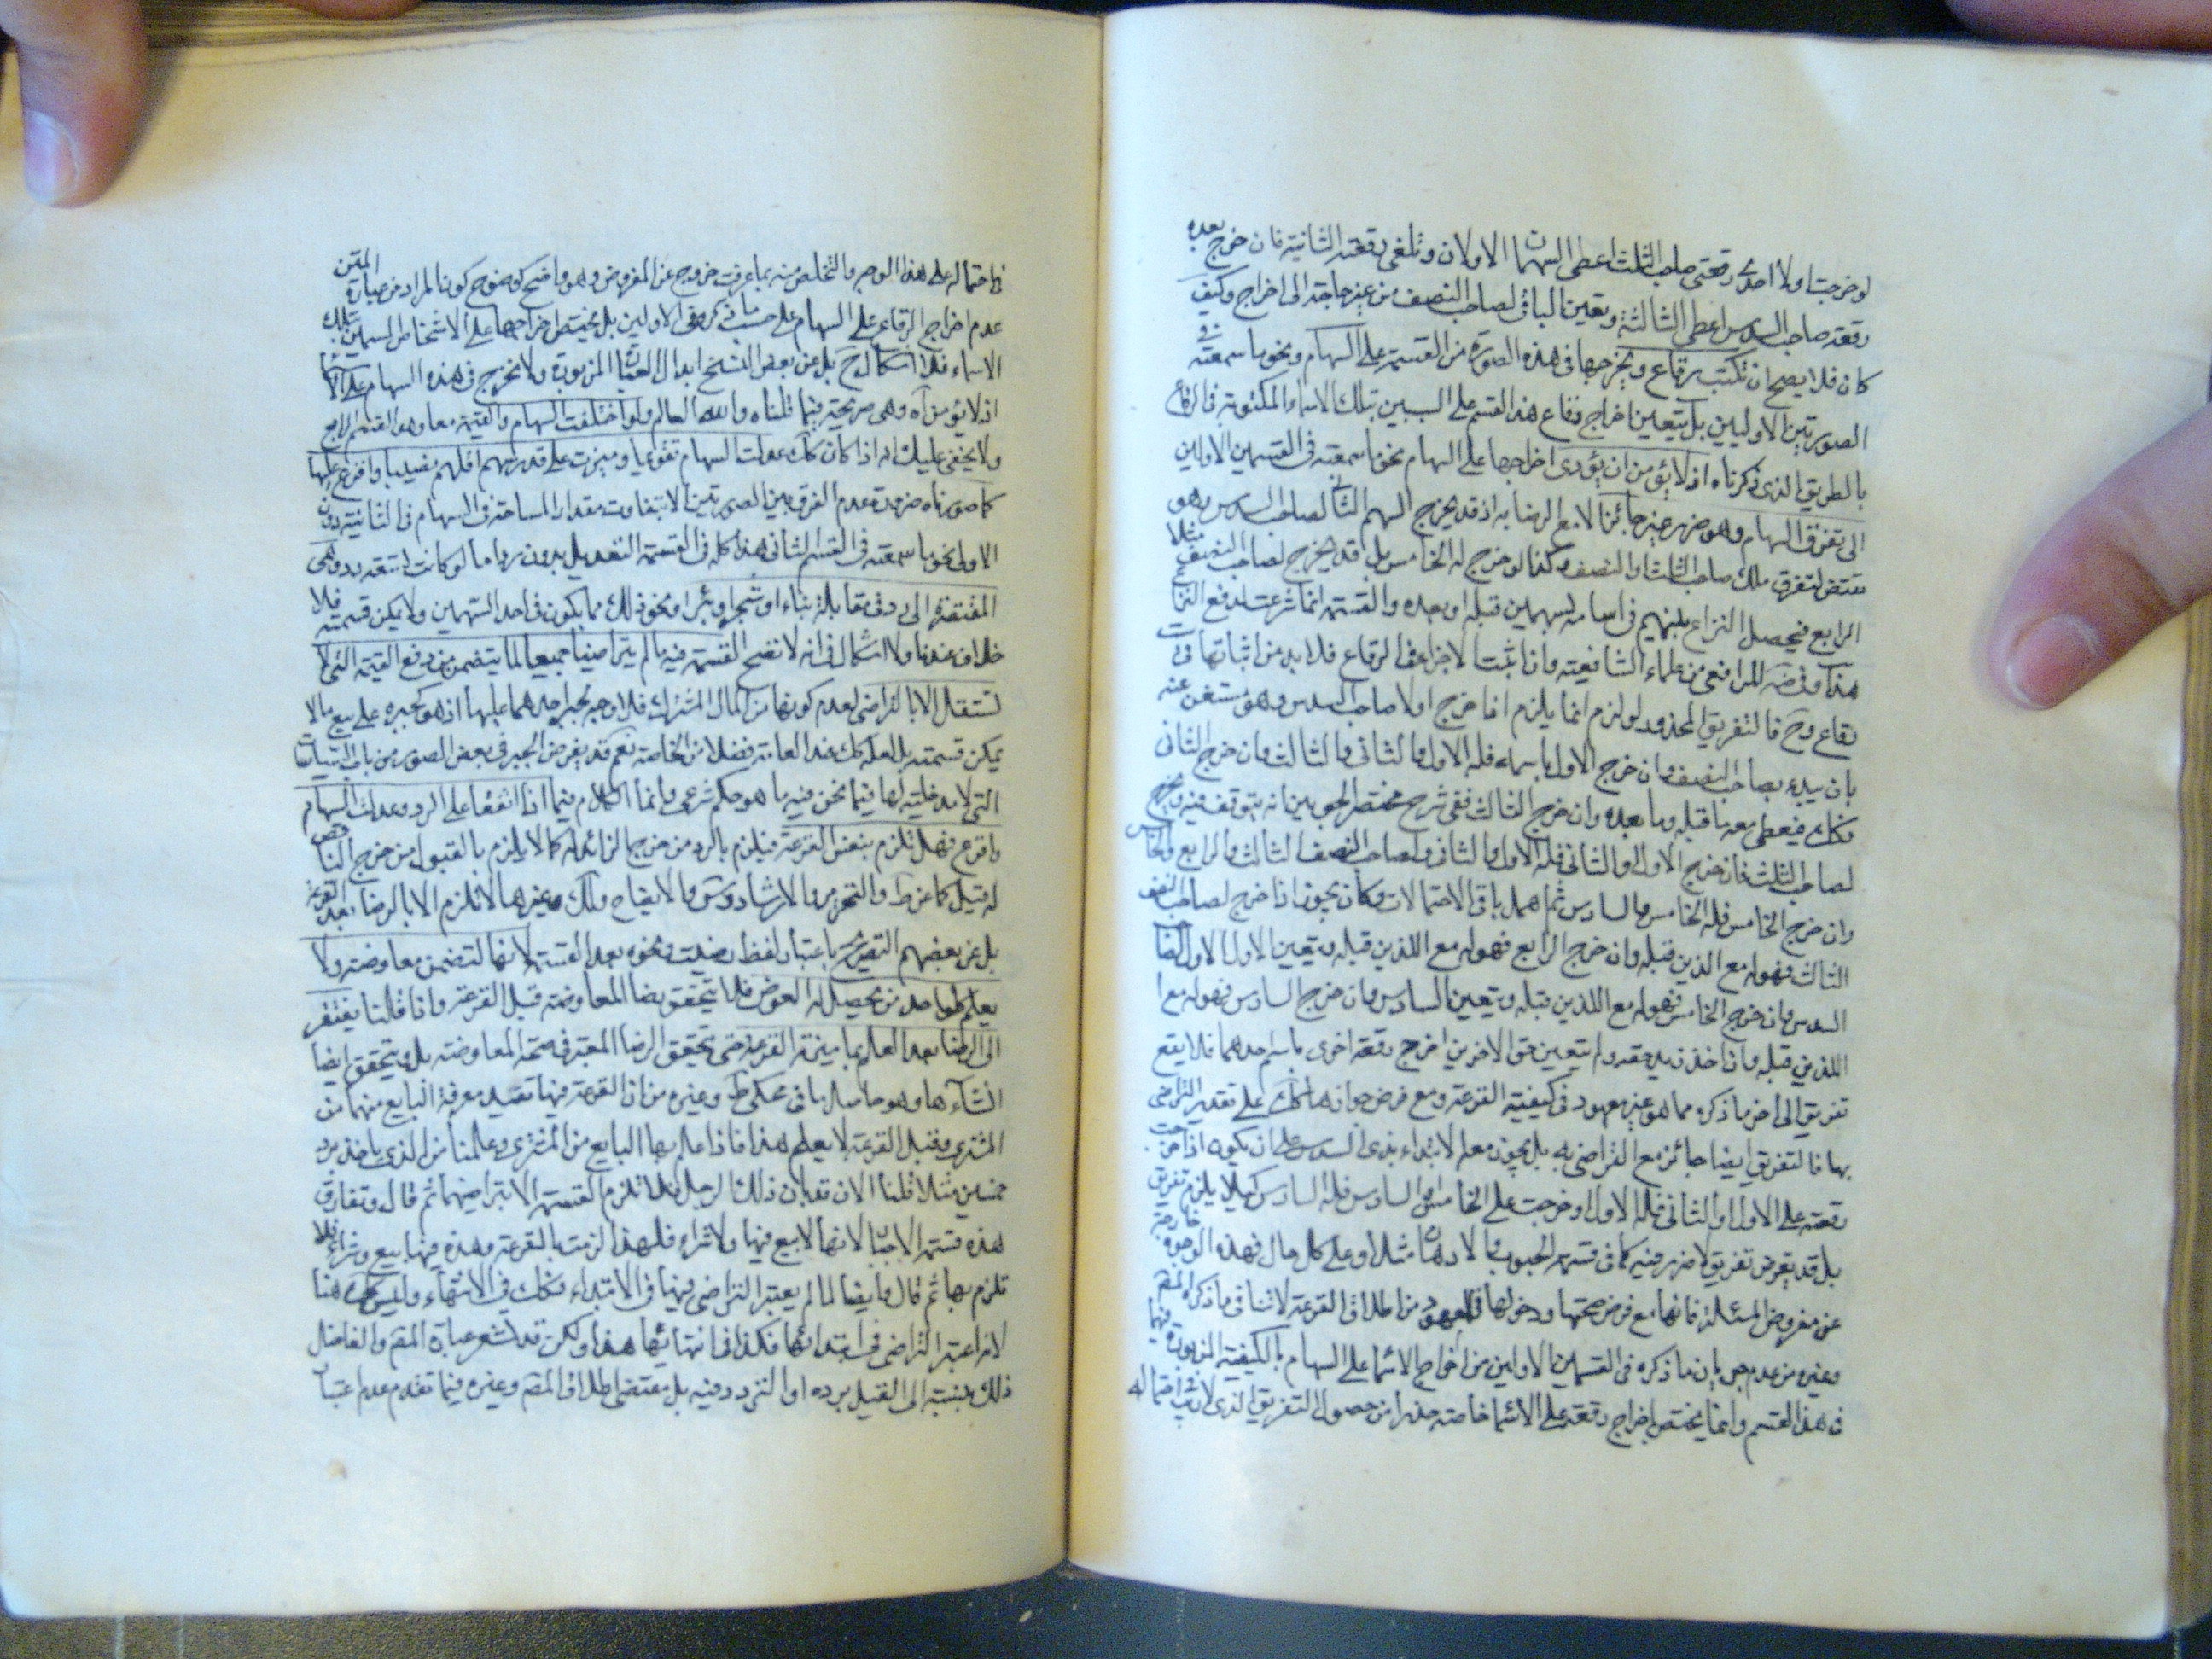 لو خرجت اولا احدى رقعتى صاحب الثلث اعطى السهمان الاولان وتلغى رقعته الثانية فان خرج بعده
رقعة صاحب السدس اعطى الثالث ويتعين الباقى لصاحب النصف من غير حاجة الى اخراج وكيف
كان فلا يصح ان تكتب رقاع ويخرجها فى هذه الصورة من القسمة على السهام ونحو ما سمعته فى
الصورتين الاوليين بل يتعين اخراج رقاع هذا القسم على السببين بتلك الاسماء المكتوبة فى الرقاع
بالطريق الذى ذكرناه اذ لا يؤمن ان يؤدى اخراجها على السهام نحو ما سمعته فى القسمين الاولين
الى تفرق السهام وهو ضرر غير جائز الا مع الرضا به اذ قد يخرج السهم الثانى لصاحب السدس وهو
يقتضى تفرق ملك صاحب الثلث او النصف وكذا لو خرج له الخامس بل قد يخرج لصاحب النصف مثلا
الرابع فيحصل النزاع بينهم فى اسامة السهمين قبله او بعده والقسمة انما شرعت لدفع النزاع
هذا وفى المرافعى من علماء الشافعية واذا اثبت الاجزاء فى الرقاع فلا بد من اثباتها فى ست
رقاع وح فالتفريق المحذور لو لزم انما يلزم اذا خرج اولا صاحب السدس وهو مستغن عنه
بان يبدء بصاحب النصف وان خرج الاول باسماء فله الاول والثانى والثالث وان خرج الثانى
فكذلك فيعطى معه ما قبله وما بعده وان خرج الثالث ففى شرح مختصر الجوينى انه يتوقف فيه ويخرج
لصاحب الثلث فان خرج الاول والثانى فله الاول والثانى ولصاحب النصف الثالث والرابع والخامس
وان خرج الخامس فله الخامس والسادس ثم اهمل باقى الاحتمالات وكان يجوز اذا خرج لصاحب النصف
الثالث فهو له مع الذين قبله وان خرج الرابع فهو له مع اللذين قبله ويتعين الاول الاول لصاحب
السدس وان خرج الخامس فهو له مع اللذين قبله ويتعين السادس وان خرج السادس فهو له مع
اللذين قبله واذا اخذ زيد حقه ولم يتعين حق الاخرين اخرج رقعة اخرى باسم احدهما فلا يقع
تفريق الى اخر ما ذكره مما هو غير معهود فى كيفية القرعة ومع فرض جوازها كذلك على تقدير التراضى
بها فالتفريق ايضا جائز مع التراضى به بل يجوز معه الابتداء بذى السدس على ان يكون اذا خرجت
رقعته على الاول او الثانى فله الاول او خرجت على الخامس او السادس فله السادس كيلا يلزم تفريق
بل قد يفرض تفريق لا ضرر فيه كما فى قسمة الحبوب والادهان مثلا وعلى كل حال فهذه الوجوه خارجة
عن مفروض المسئلة فانها مع فرض صحتها ودخولها فى المعهود من اطلاق القرعة لا تنافى ما ذكره المصر
وغيره من عدم جريان ما ذكره فى القسمين الاولين من اخراج الاسماء على السهام بالكيفية المزبورة فيما
فى هذا القسم وانما يختص اخراج رقعته على الاسماء خاصة حذرا من حصول التفريق الذى لا ريب فى احتماله
احتماله على هذا الوجه والتخلص منه بما عرفت خروج عن المفروض وهو واضح كوضوح كون المراد من عبارة المتن
عدم اخراج الرقاع على السهام على حسب ما ذكروه فى الاولين بل يختص اخراجها على الاشخاص المسمين بتلك
الاسماء فلا اشكال ح بل عن بعض النسخ ابدال العبارة المزبورة ولا يخرج فى هذه السهام على الاسماء
اذ لا يؤمن آه وهى صريحة فيما قلناه والله العالم ولو اختلفت السهام والقيمة معا وهو القسم الرابع
ولا يخفى عليك انه اذا كان كذلك عدلت السهام تقويما وميزت على قدر سهم اقلهم نصيبا واقرع عليها
كما صورناه ضرورة عدم الفرق بين الصورتين الا بتفاوت مقدار المساحة فى السهام فى الثانية دون
الاولى نحو ما سمعته فى القسم الثانى هذا كله فى القسمة التعديل بدون رد اما لو كانت قسمة رد وهى
المفتقرة الى رد فى مقابلة بناء او شجر او بئر او نحو ذلك مما يكون فى احد السهمين ولا يمكن قسمته فلا
خلاف عندنا ولا اشكال فى انه لا تصح القسمة فيه ما لم يتراضيا جميعا لما يتضمن من دفع القيمة التى لا
تستقل الا بالتراضى لعدم كونها من المال المشترك فلا وجه لجبر احدهما عليها اذ هو كجبره على بيع ما لا
يمكن قسمته بل لعله كك عند العامة فضلا عن الخاصة نعم قد يفرض الجبر فى بعض الصور من باب السياسات
التى لا مدخلية لها فيما نحن فيه ما هو حكم شرعى وانما الكلام فيما اذا اتفقا على الرد وعدلت السهام
واقرع فهل تلزم بنفس القرعة فيلزم بالرد من خرج الزائد له كما لا يلزم بالقبول من خرج الناقص
له قيل كما عن ط والتحرير والارشاد وس والايضاح ولك وغيرها لا تلزم الا بالرضا بعد القرعة
بل عن بعضهم التصريح باعتبار لفظ رضيت ونحوه بعد القسمة لانها لتضمن معاوضة ولا
يعلم كل واحد من يحصل له العوض فلا يتحقق رضا المعاوضة قبل القرعة واذا قلنا يفتقر
الى الرضا بعد العلم بما ميزته القرعة حتى يتحقق الرضا المعتبر فى صحة المعاوضة بل ويتحقق ايضا
انشاءها وهو حاصل ما فى محكى ط وغيره من ان القرعة فيها تفيد معرفة البايع منهما من
المشترى وقبل القرعة لا يعلم هذا فاذا علم بها البايع من المشترى وعلمنا من الذى ياخذ برد
خمسين مثلا قلنا الان قد بان ذلك الرجل فلا تلزم القسمة الا بتراضيهما ثم قال وتفارق
هذه قسمة الاجبار لانها لا بيع فيها ولا شراء فلهذا لزمت بالقرعة وهذه فيها بيع وشراء فلا
تلزم بها ثم قال وايضا لما لم يعتبر التراضى فيها فى الابتداء فكذلك فى الانتهاء وليس كك هنا
لانه اعتبر التراضى فى ابتدائها فكذا فى انتهائها هذا ولكن قد اشعر عبارة المصر والفاضل
ذلك بنسبته الى القيل برده او التردد فيه بل مقتضى اطلاق المصر وغيره فيما تقدم عدم اعتبار